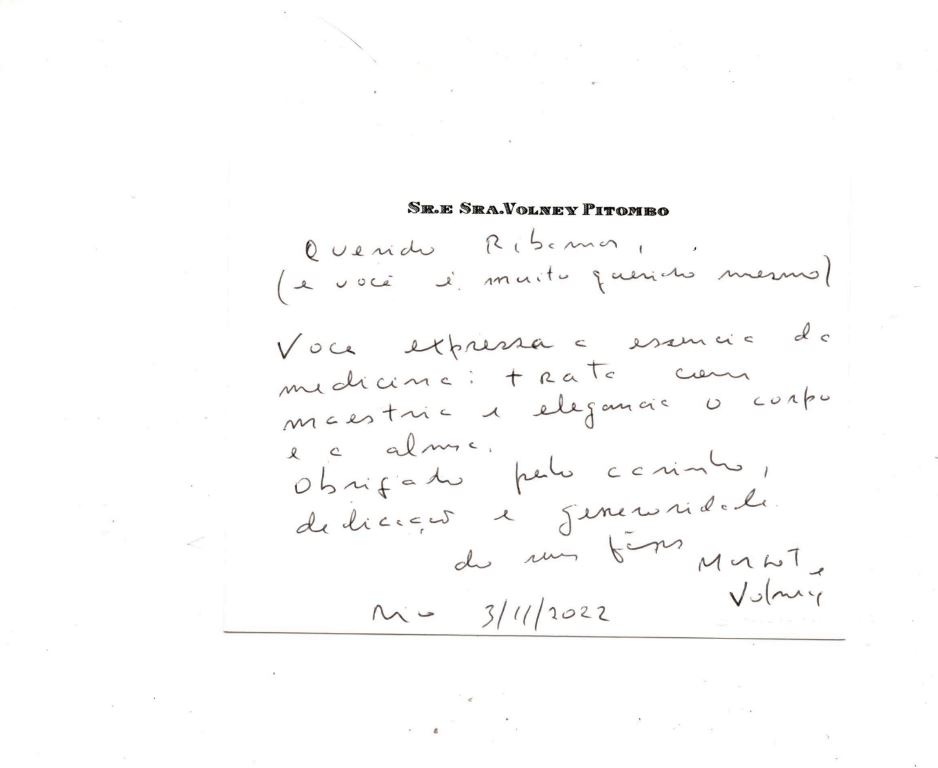 Sr.e Sra.Volney Pitombo
Querido Ribamar,
(e você é muito querido mesmo)
Voce expressa a essencia da
medicina: trata com
maestria e elegancia o corpo
e a alma.
Obrigado pelo carinho,
dedicação e generosidade.
do seus fãs
Margot e
Volney
Rio 3/11/2022